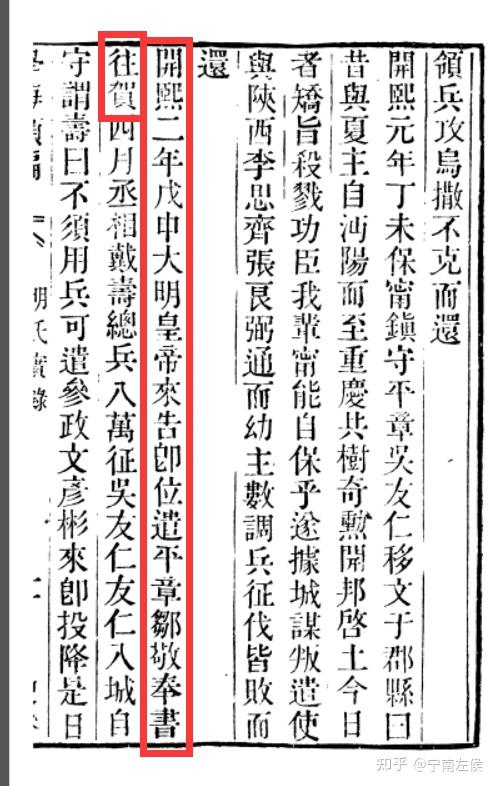 領兵攻烏撒不克而還
開熙元年丁未保甯鎮守平章吳友仁移文于郡縣曰
昔與夏主自沔陽而至重慶共樹奇勲開邦啓土今日
者矯旨殺戮功臣我輩甯能自保乎遂據城謀叛遣使
與陝西李思齊張良弼通而幼主數調兵征伐皆敗而
還
開熙二年戊申大明皇帝來告卽位遣平章鄒敬奉書
往賀四月丞相戴壽總兵八萬征吳友仁友仁入城自
守謂壽曰不須用兵可遣參政文彥彬來卽投降是日
明氏實錄
知乎 @宁南左侯